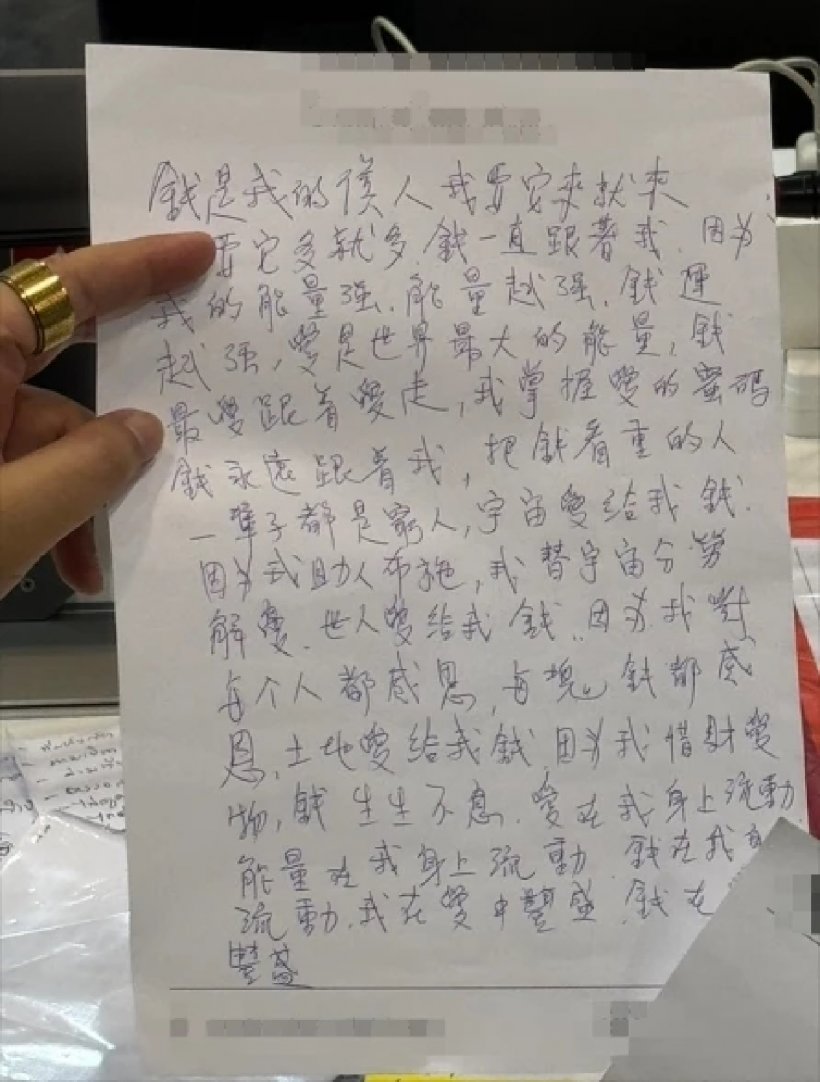 錢是我的僕人 我要它來就來
要它多就多.錢一直跟著我.因为
我的能量強.能量越强.錢運
越强,愛是世界最大的能量,錢
最愛跟着愛走,我掌握愛的蜜码
錢永遠跟着我,把錢看重的人
一輩子都是窮人,宇宙愛給我錢.
因为我助人布施,我替宇宙分勞
解憂.世人愛給我錢.因为我對
每个人都感恩,每塊錢都感
恩,土地愛給我錢,因为我惜財愛
物,錢生生不息.愛在我身上流動.
能量在我身上流動.錢在我身
流動.我在愛中豐盛.錢在
豐盛